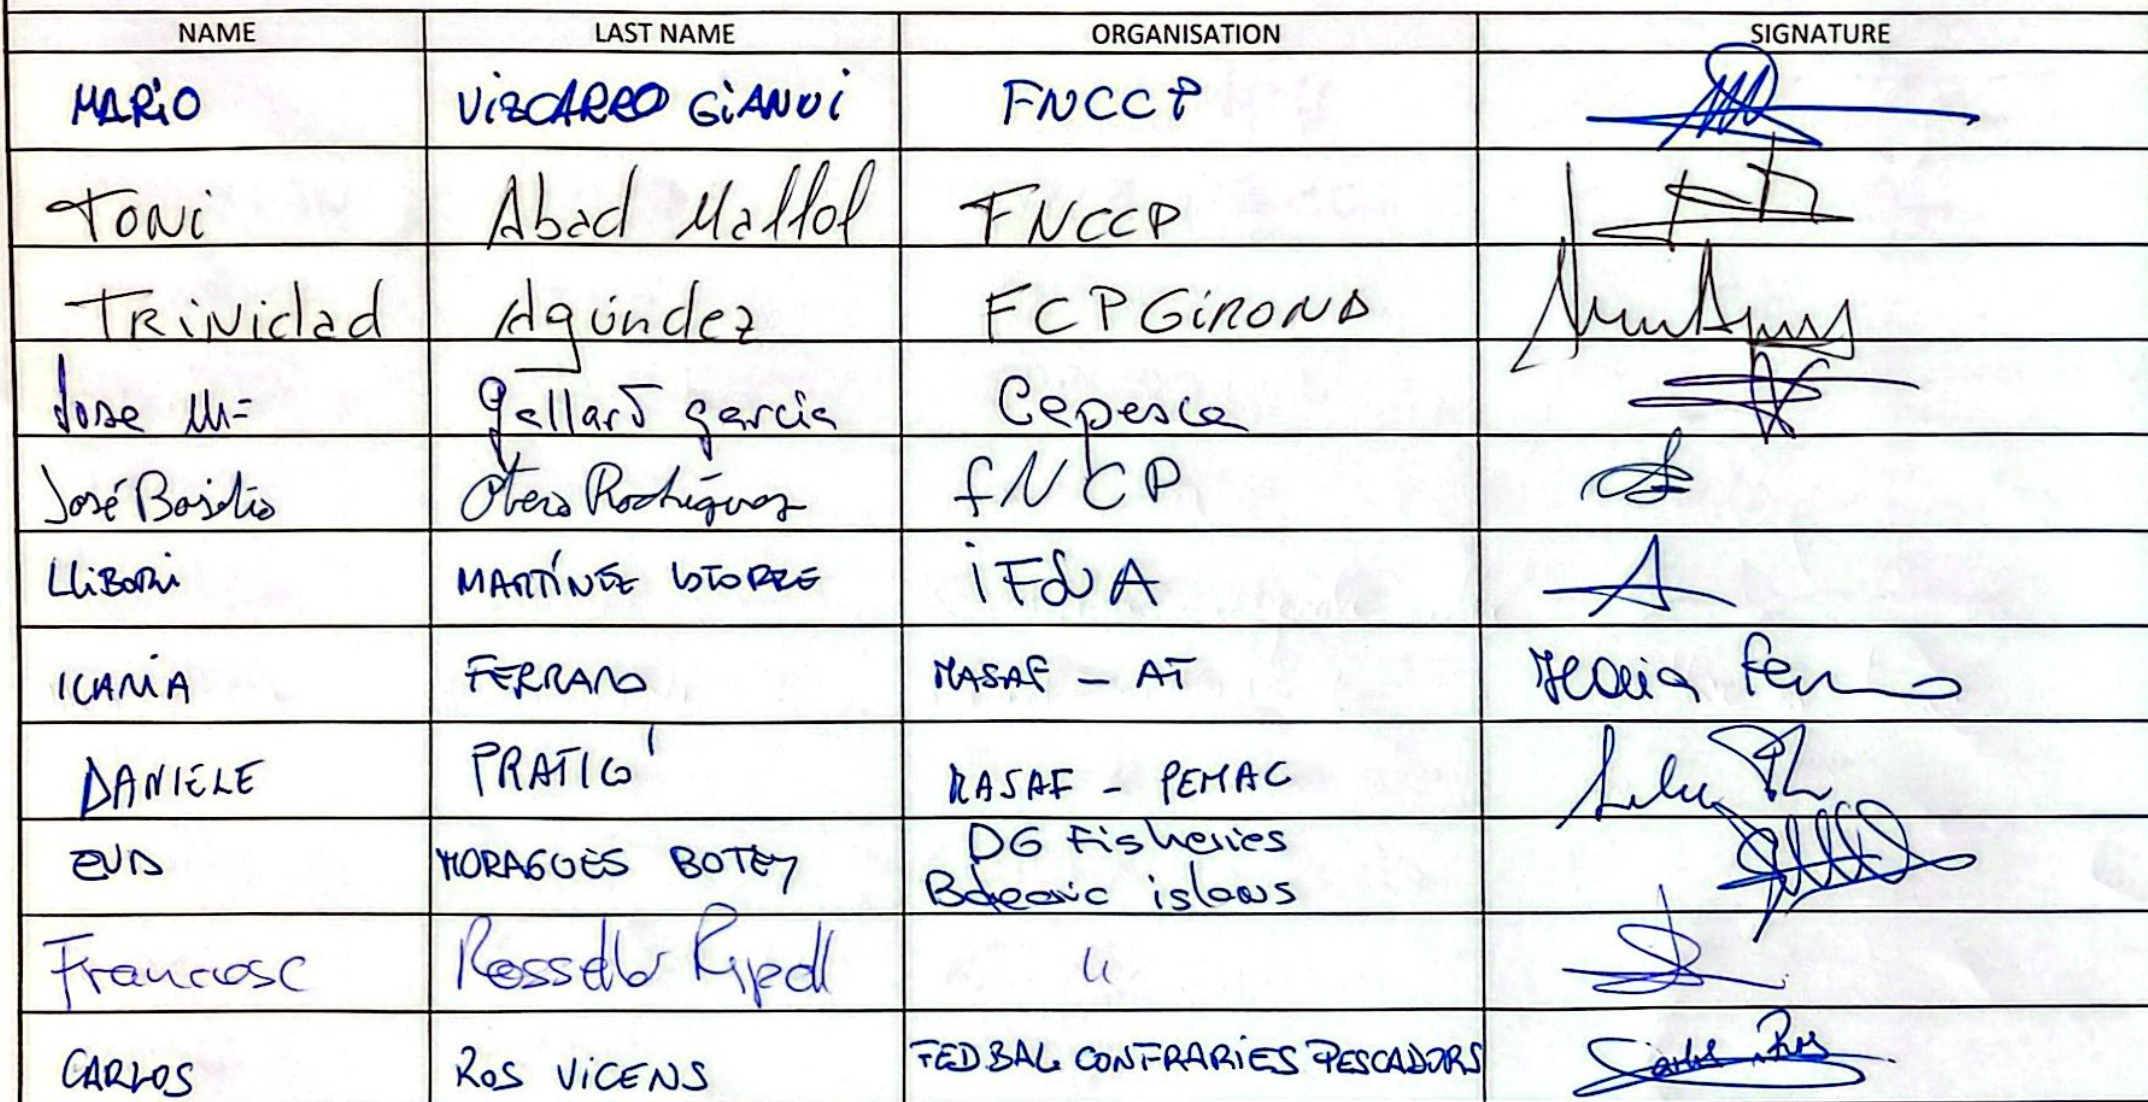 NAME LAST NAME ORGANISATION SIGNATURE
MARiO ViZCARRO GiANNi FNCCP
TONi Abad Mallol FNCCP
TRiNidad Agúndez FCP GiRONA
Jose Mª gallart garcia Cepesca
José Basilio Otero Rodríguez fNCP
LLiBORi MARTÍNEZ iFSUA
ILARIA FERRARO MASAF - AT Ilaria
DANIELE PRATICO' MASAF - PEMAC
MORAGUES BOTEY DG Fisheries
Balearic islans
Francesc Rosselló Ripoll "
CARLOS ROS ViCENS FED BAL CONFRARiES PESCADORS Carlos Ros